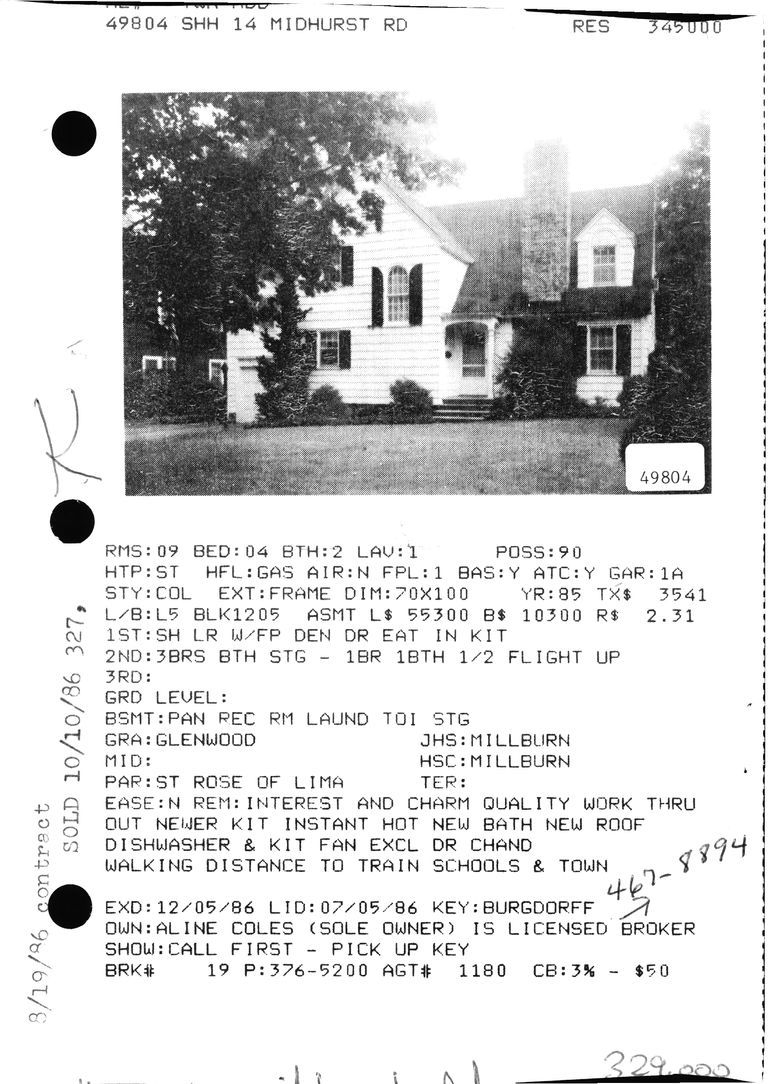 49804 SHH 14 MIDHURST RD RES 345000
49804
RMS:09 BED:04 BTH:2 LAV:1 POSS:90
HTP:ST HFL:GAS AIR:N FPL:1 BAS:Y ATC:Y GAR:1A
STY:COL EXT:FRAME DIM:70X100 YR:85 TX$ 3541
L/B:L5 BLK1205 ASMT L$ 55300 B$ 10300 R$ 2.31
1ST:SH LR W/FP DEN DR EAT IN KIT
2ND:3BRS BTH STG - 1BR 1BTH 1/2 FLIGHT UP
3RD:
GRD LEVEL:
BSMT:PAN REC RM LAUND TOI STG
GRA:GLENWOOD JHS:MILLBURN
MID: HSC:MILLBURN
PAR:ST ROSE OF LIMA TER:
EASE:N REM:INTEREST AND CHARM QUALITY WORK THRU
OUT NEWER KIT INSTANT HOT NEW BATH NEW ROOF
DISHWASHER & KIT FAN EXCL DR CHAND
WALKING DISTANCE TO TRAIN SCHOOLS & TOWN
467-8894
EXD:12/05/86 LID:07/05/86 KEY:BURGDORFF
OWN:ALINE COLES (SOLE OWNER) IS LICENSED BROKER
SHOW:CALL FIRST - PICK UP KEY
BRK# 19 P:376-5200 AGT# 1180 CB:3% - $50
329,000
8/19/86 contract
SOLD 10/10/86 327,